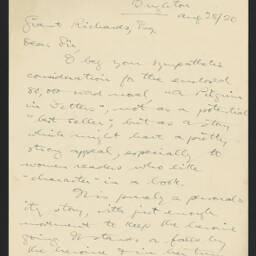 Brighton
Aug 28/20
Grant Richards, Esq.
Dear Sir,
I beg your sympathetic
consideration for the enclosed
80,000 word novel "A Pilgrim
in Fetters", not as a potential
"best seller", but as a story
which might have a pretty
strong appeal, especially to
women readers who like
"character" in a book.
It is purely a personal-
ity story, with just enough
movement to keep the heroine
going. It stands or falls by
the heroine & in her